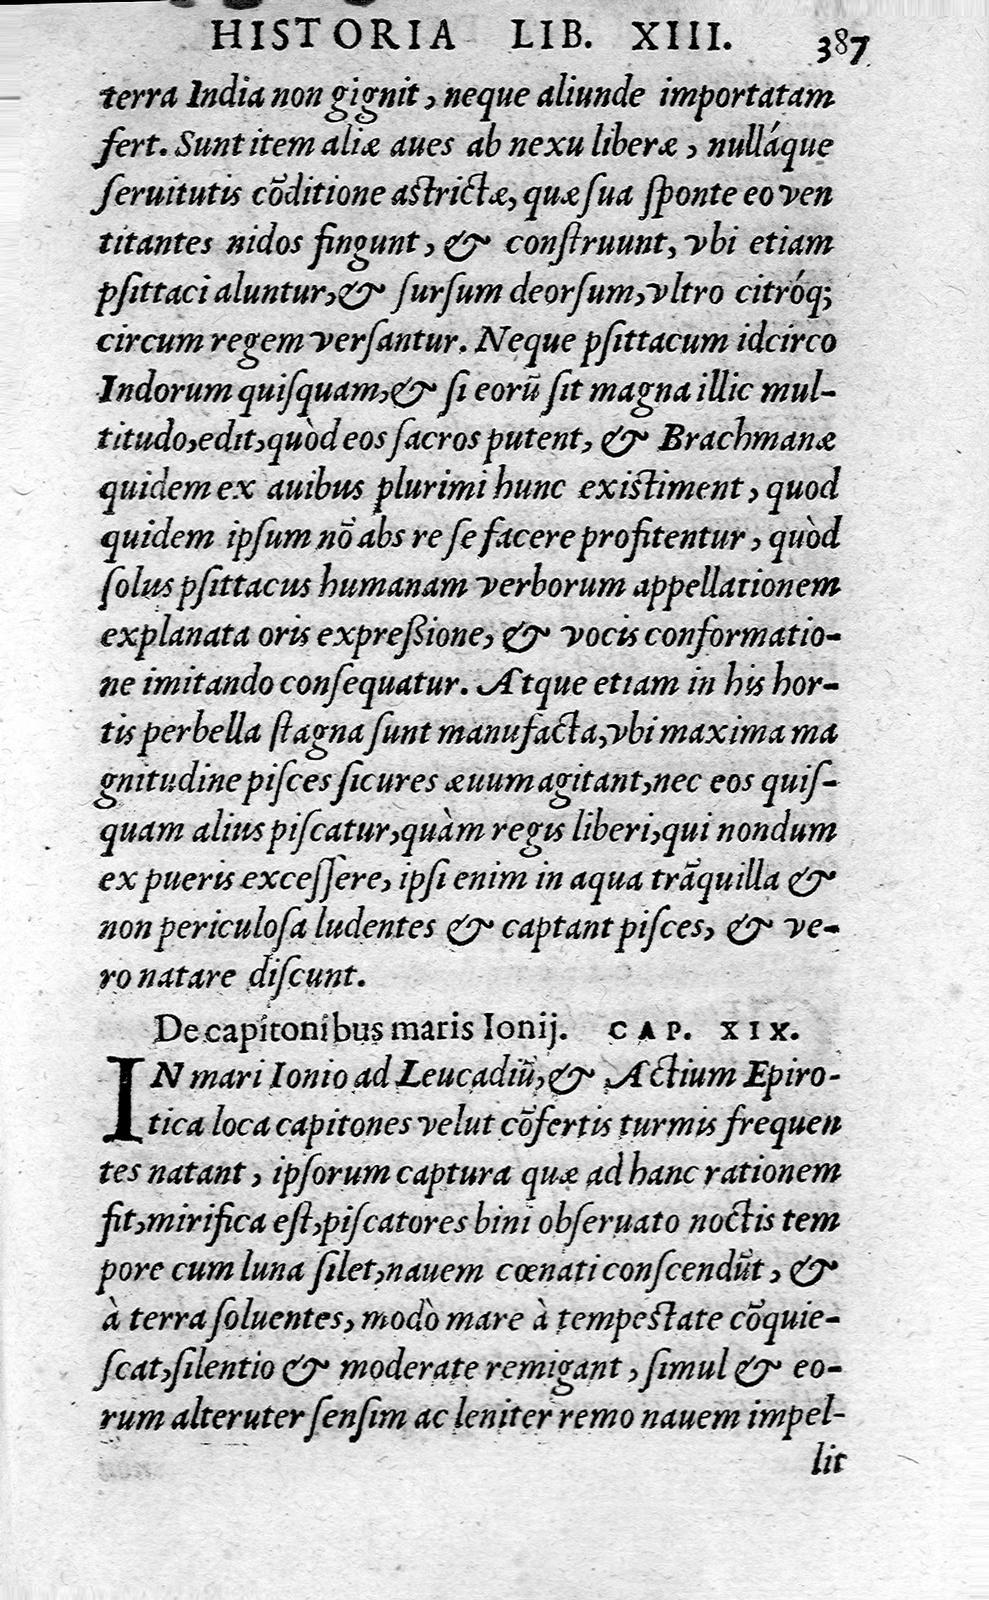 HISTORIA LIB. XIII. 387
terra India non gignit, neque aliunde importatam
fert. Sunt item aliæ aues ab nexu liberæ, nulláque
ſeruitutis cōditione astrictæ, quæ ſua ſponte eo ven
titantes nidos fingunt, & conſtruunt, vbi etiam
pſittaci aluntur, & ſurſum deorſum, vltro citróq;
circum regem verſantur. Neque pſittacum idcirco
Indorum quiſquam, & ſi eorū ſit magna illic mul-
titudo, edit, quòd eos ſacros putent, & Brachmanæ
quidem ex auibus plurimi hunc existiment, quod
quidem ipſum nō abs re ſe facere profitentur, quòd
ſolus pſittacus humanam verborum appellationem
explanata oris expreßione, & vocis conformatio-
ne imitando conſequatur. Atque etiam in his hor-
tis perbella ſtagna ſunt manufacta, vbi maxima ma
gnitudine piſces ſicures æuum agitant, nec eos quiſ-
quam alius piſcatur, quàm regis liberi, qui nondum
ex pueris exceſſere, ipſi enim in aqua trāquilla &
non periculoſa ludentes & captant piſces, & ve-
ro natare diſcunt.
De capitonibus maris Ionij. CAP. XIX.
IN mari Ionio ad Leucadiū, & Actium Epiro-
tica loca capitones velut cōfertis turmis frequen
tes natant, ipſorum captura quæ ad hanc rationem
fit, mirifica eſt, piſcatores bini obſeruato noctis tem
pore cum luna ſilet, nauem cœnati conſcendūt, &
à terra ſoluentes, modò mare à tempestate cōquie-
ſcat, ſilentio & moderate remigant, ſimul & eo-
rum alteruter ſenſim ac leniter remo nauem impel-
lit